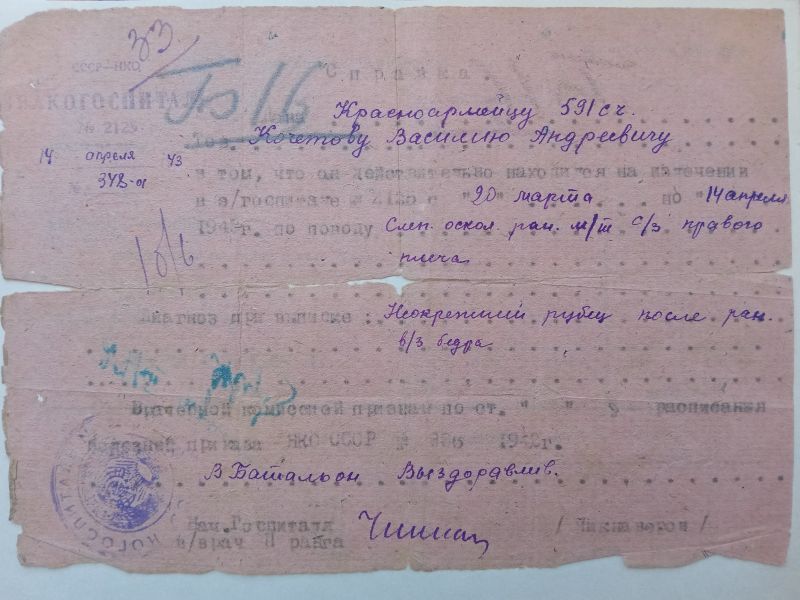 33
СССР-НКО
ЭВАКОГОСПИТАЛЬ
№ 2125
14 апреля 43
№ 348-01
Справка.
16
Дана Красноармейцу 591 сч.
Тов. Кочетову Василию Андреевичу
в том, что он действительно находился на излечении
в э/госпитале № 2125 с "20" марта по "14 апреля
194 г. по поводу Слеп. оскол. ран. м/т с/з правого
плеча
Диагноз при выписке: Неокрепший рубец после ран.
в/з бедра
Врачебной комиссией признан по ст. " " расписания
болезней приказа НКО СССР № 336 1942г.
В Батальон Выздоравлив.
Нач. Госпиталя
в/врач II ранга